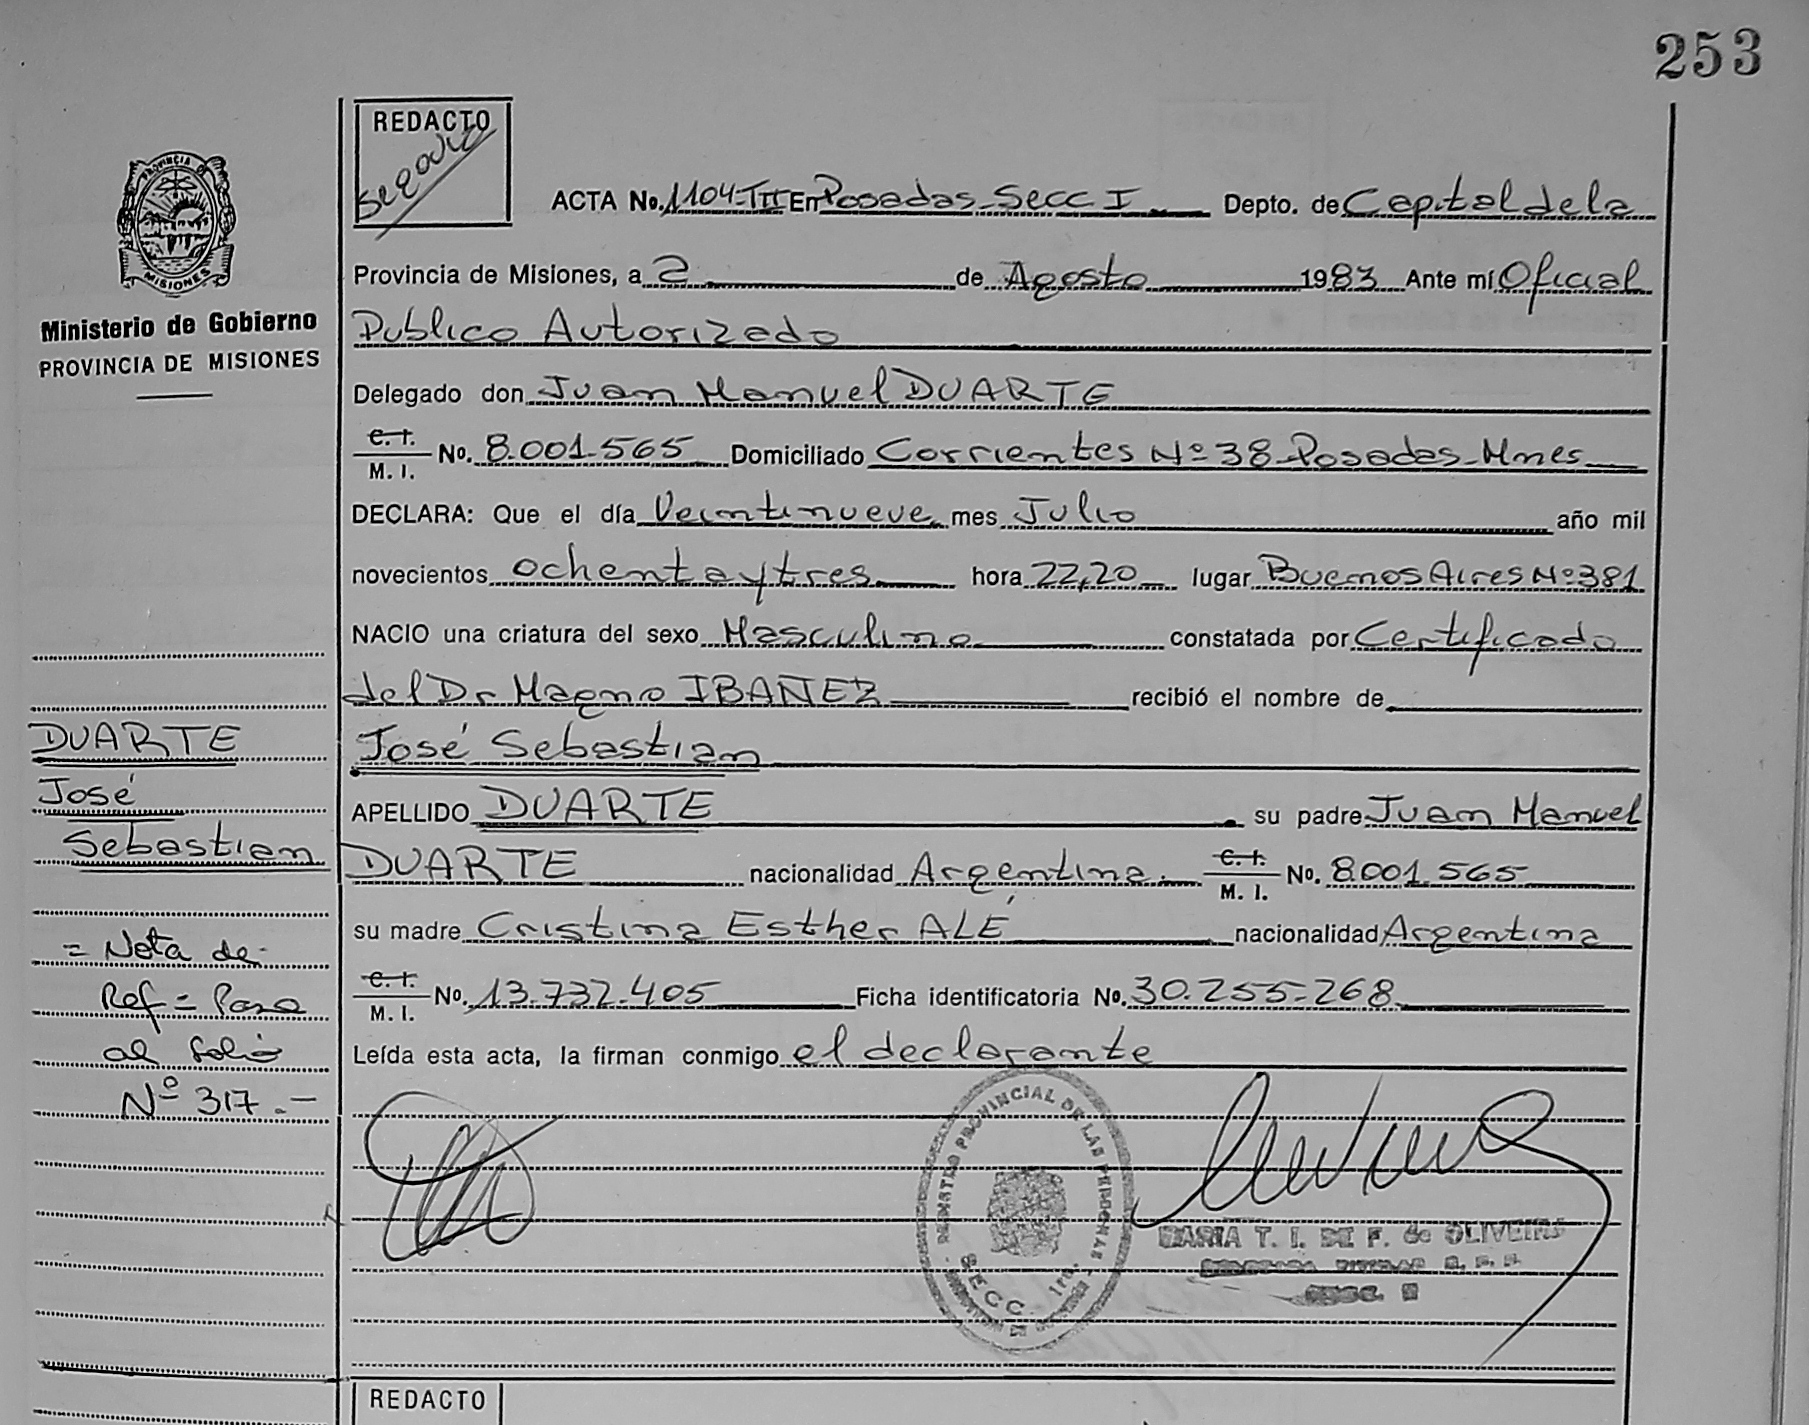 253
REDACTO
ACTA No. 1104-TII En Posadas-Secc I Depto. de Capital de la
PROVINCIA DE
MISIONES
Provincia de Misiones, a 2 de Agosto 1983 Ante mí Oficial
Ministerio de Gobierno
Publico Autorizado
PROVINCIA DE MISIONES
Delegado don Juan Manuel DUARTE
C. I. M. I. No. 8.001.565 Domiciliado Corrientes Nº 38-Posadas-Mnes
DECLARA: Que el día Veintinueve mes Julio año mil
novecientos ochenta y tres hora 22,20 lugar Buenos Aires Nº 381
NACIO una criatura del sexo Masculino constatada por Certificado
del Dr Magno IBAÑEZ recibió el nombre de
DUARTE
José Sebastian
José
APELLIDO DUARTE su padre Juan Manuel
Sebastian
DUARTE nacionalidad Argentina. C. I. M. I. No. 8.001.565
su madre Cristina Esther ALÉ nacionalidad Argentina
= Nota de
Ref = Pasa
C. I. M. I. No. 13.732.405 Ficha identificatoria No. 30.255-268
al folio
Leída esta acta, la firman conmigo el declarante
Nº 317.-
REGISTRO PROVINCIAL DE LAS PERSONAS
SECC. 1ra.
MARIA T. I. DE F. de OLIVEIRA
REDACTO